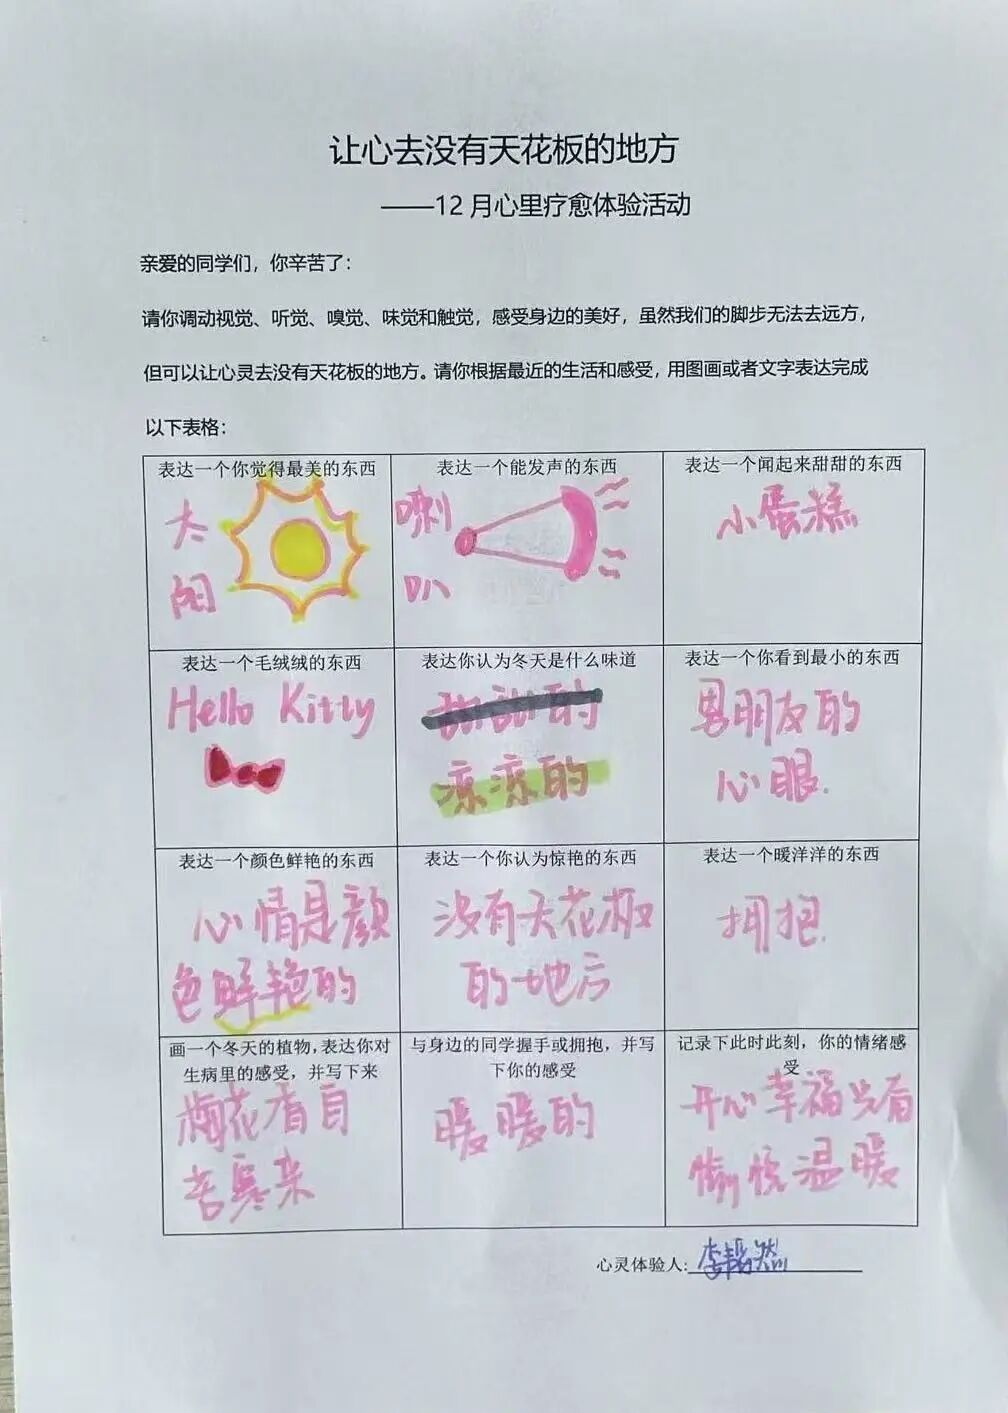 让心去没有天花板的地方
——12月心里疗愈体验活动
亲爱的同学们，你辛苦了：
请你调动视觉、听觉、嗅觉、味觉和触觉，感受身边的美好，虽然我们的脚步无法去远方，
但可以让心灵去没有天花板的地方。请你根据最近的生活和感受，用图画或者文字表达完成
以下表格：
表达一个你觉得最美的东西
太
阳
表达一个能发声的东西
喇
叭
表达一个闻起来甜甜的东西
小蛋糕
表达一个毛绒绒的东西
Hello Kitty
表达你认为冬天是什么味道
甜甜的
凉凉的
表达一个你看到最小的东西
男朋友的
心眼.
表达一个颜色鲜艳的东西
心情是颜
色鲜艳的
表达一个你认为惊艳的东西
没有天花板
的地方
表达一个暖洋洋的东西
拥抱.
画一个冬天的植物，表达你对
生病里的感受，并写下来
梅花香自
苦寒来
与身边的同学握手或拥抱，并写
下你的感受
暖暖的
记录下此时此刻，你的情绪感
受
开心幸福
愉悦温暖
心灵体验人：李